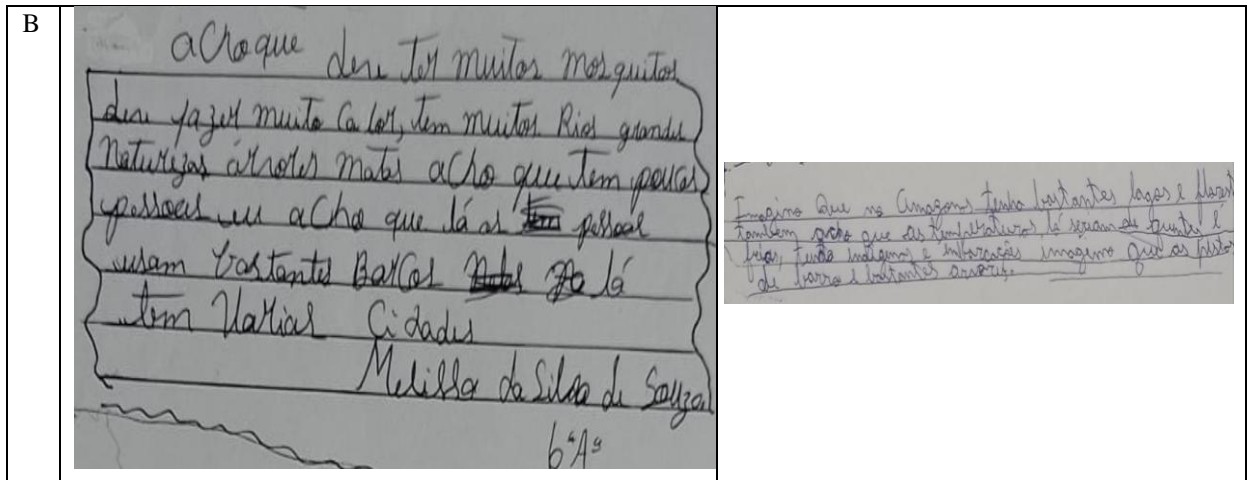 B
achoque deve ter muitos mosquitos
deve fazer muito calor, tem muitos Rios grandes
Naturezas árvores matos acho que tem poucas
pessoas eu acho que lá as pessoal
usam bastantes Barcos lá
tem Varias Cidades
Melissa da Silva de Souza
6ªAª
Imagino que na Amazons tenha bastantes lagos e
também acho que as temperaturas lá seriam de quente é
fria, tendo indígenas e embarcações imagino que as
de barro e bastantes